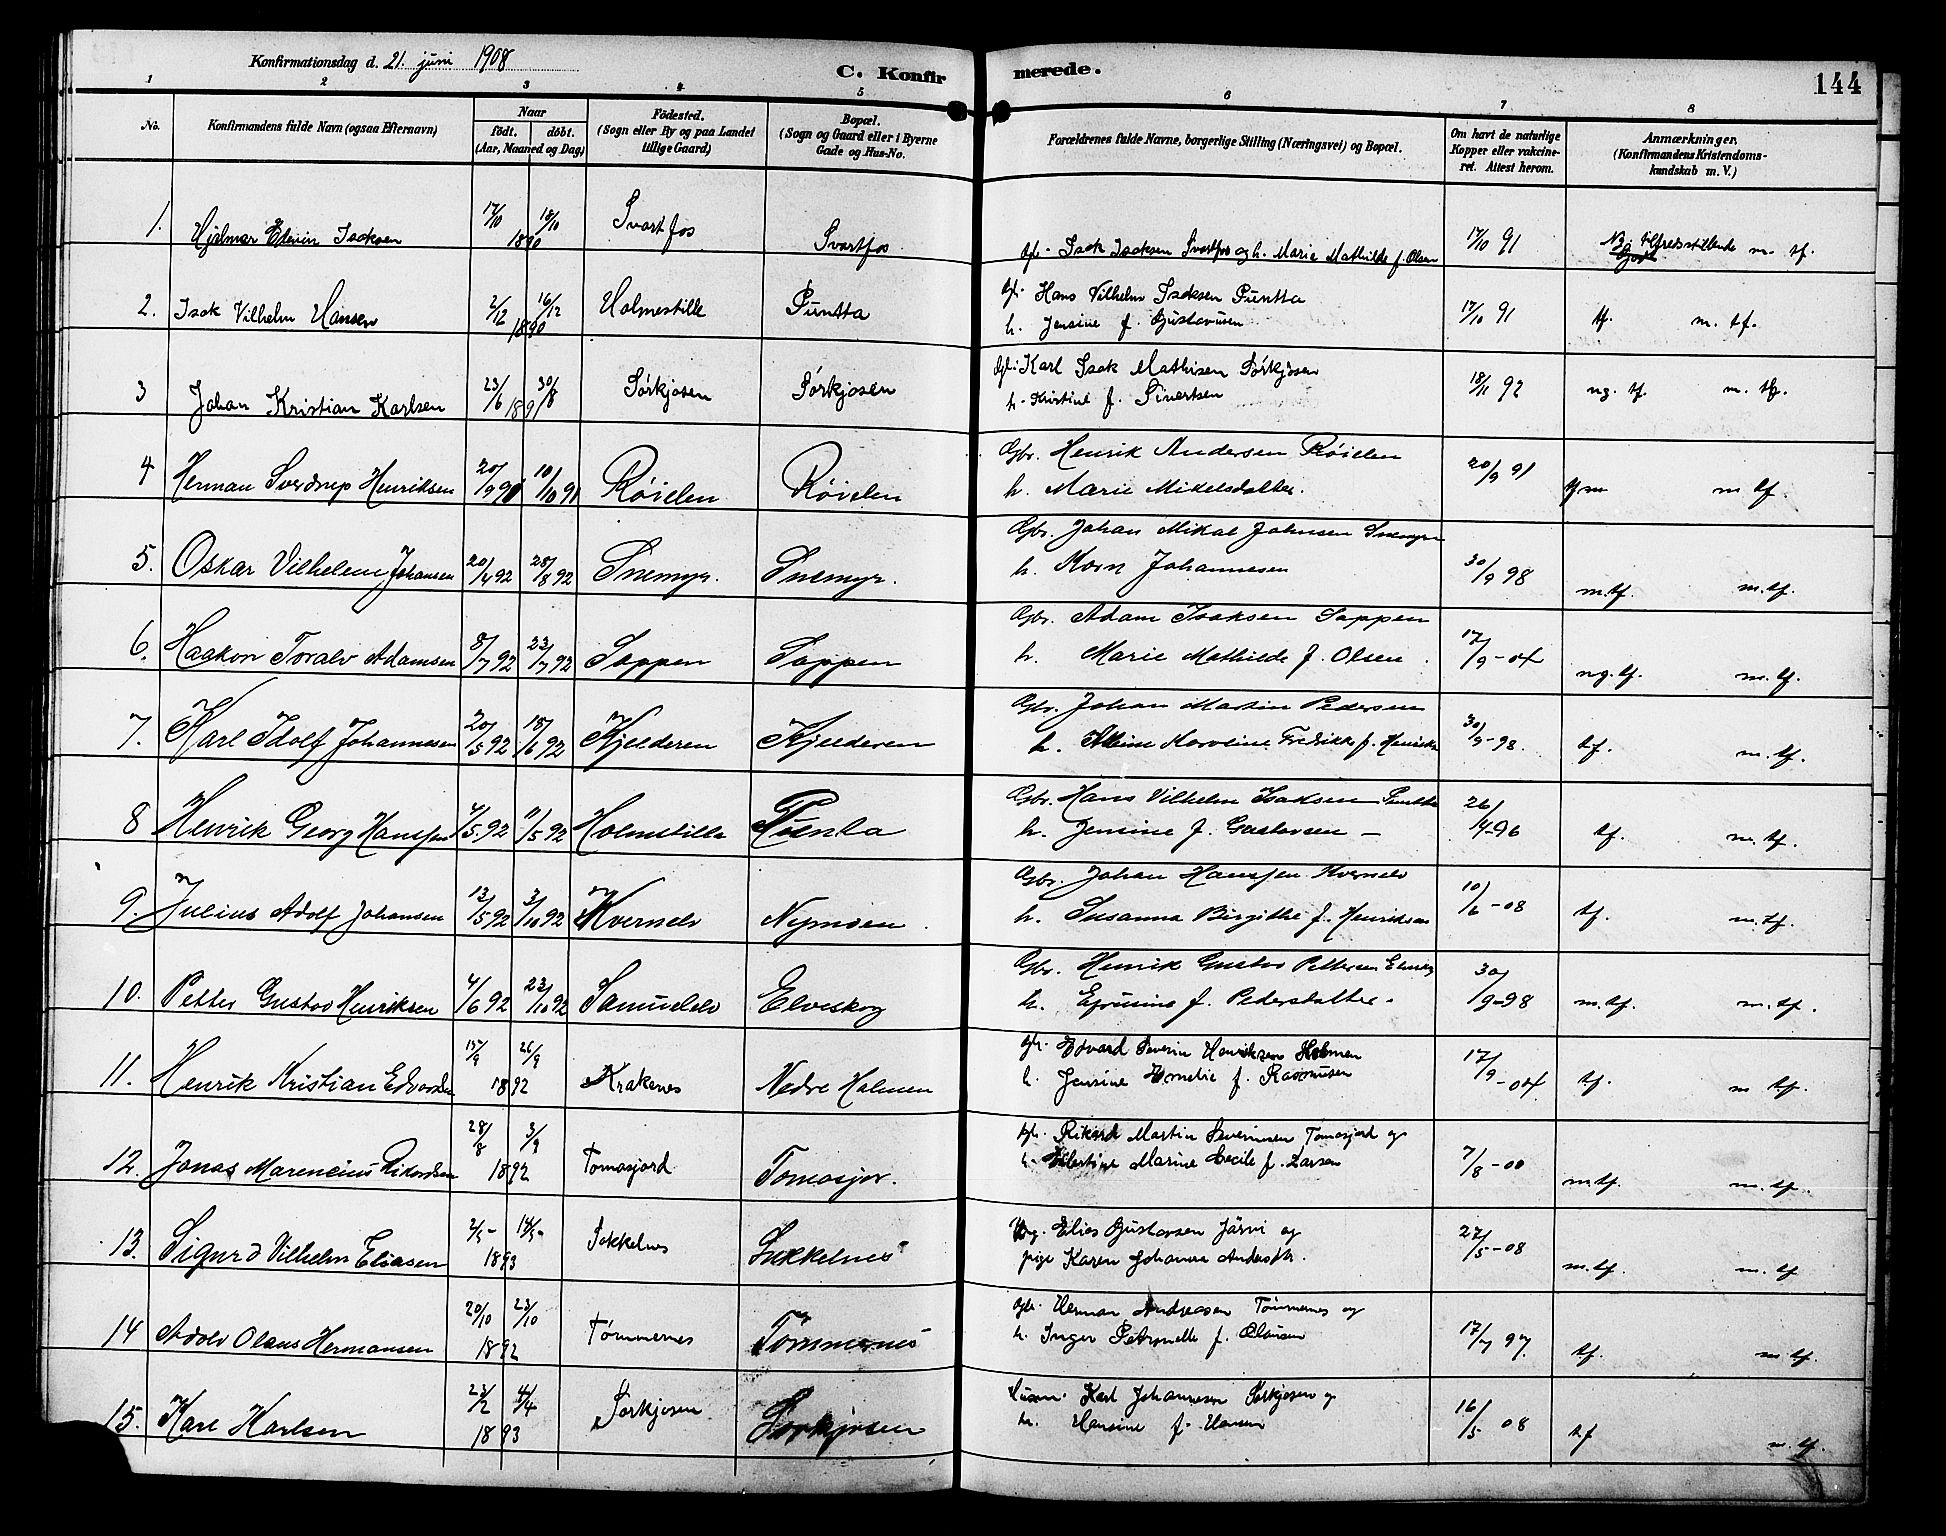 Konfirmationsdag d. 21. juni 1908
C. Konfirmerede.
144
1 2 3 4 5 6 7 8
No.
Konfirmandens fulde Navn (ogsaa Efternavn)
Naar
födt. döbt.
(Aar, Maaned og Dag)
Födested.
(Sogn eller By og paa Landet
tillige Gaard)
Bopæl.
(Sogn og Gaard eller i Byerne
Gade og Hus-No.
Forældrenes fulde Navne, borgerlige Stilling (Næringsvei) og Bopæl.
Om havt de naturlige
Kopper eller vakcine-
ret. Attest herom.
Anmærkninger.
(Konfirmandens Kristendoms-
kundskab m. V.)
1. Hjalmar Edvin Isaksen 17/10 18/10 1890 Svartfos Svartfos
Isak Isaksen Svartfos og h. Marie Mathilde f. Olsen 17/10 91 tilfredsstillende m. tf.
2. Isak Vilhelm Hansen 2/12 16/12 1890 Holmestille Puntta
Hans Vilhelm Isaksen Puntta
h. Jensine f. Gustavsen 17/10 91 tf. m. tf.
3 Johan Kristian Karlsen 23/6 30/8 1891 Sørkjosen Sørkjosen
Karl Isak Mathisen Sørkjosen
h. Kristine f. Sivertsen 18/11 92 ng. tf. m. tf.
4 Herman Sverdrup Henriksen 20/9 91 10/10 91 Røielen Røielen
Gbr. Henrik Andersen Røielen
h. Marie Mikelsdatter. 20/9 91 m tf.
5. Oskar Vilhelm Johansen 20/4 92 28/8 92 Snemyr. Snemyr.
Gbr. Johan Mikal Johnsen Snemyr
h. Karn Johannesen 30/9 98 m. tf. m. tf.
6. Haakon Toralv Adamsen 8/7 92 23/7 92 Sappen Sappen
Gbr. Adam Isaksen Sappen
h. Marie Mathilde f. Olsen 17/9 - 04 ng. tf. m. tf.
7. Karl Idolf Johannesen 20/5 92 18/6 92 Kjelderen Kjelderen
Gbr. Johan Martin Pedersen
h. Karoline Fredrikke f. Henriks 30/9 - 98. tf. m. tf.
8 Henrik Georg Hanssen 4/5. 92 11/5 92 Holmstille Puenta
Gbr. Hans Vilhelm Isaksen Puntta
h. Jensine f. Gustavsen — 26/4-96 tf. m. tf.
9. Julius Adolf Johansen 13/5 92 3/10 92 Kvernelv Nymoen.
Gbr. Johan Hanssen Kvernelv
h. Susanna Birgitte f. Henriksen 10/6 - 08 tf. m. tf.
10. Petter Gustav Henriksen 4/6 92 23/10 92 Samuelelv Elveskog
Gbr. Henrik Gustav Pettersen Elveskog
h. Efrusine f. Pedersdatter. 30/9-98 m. tf. m. tf.
11. Henrik Kristian Edvardsen 15/9 26/9 1892 Krakenes Nedre Holmen
Edvard Severin Henriksen Holmen
h. Jensine Amelie f. Rasmusen 17/9 - 04 tf. m tf.
12. Jonas Marencius Rikardsen 28/8 3/9 1892 Tomasjord Tomasjor.
Rikard Martin Severinsen Tomasjord og
h. Marine Cecile f. Larsen 7/8 - 00 m. tf. m. tf.
13. Sigurd Vilhelm Eliasen 2/5- 14/5- 1893 Sokkelnes Sukkelnes
Elias Gustavsen Järvi og
pige Karen Johanna Andersdtr. 27/5 - 08 m. tf. m. tf
14 Adolv Olaus Hermansen 20/10 23/10 1892 Tømmernes Tømmernes
Herman Andreasen Tømmernes og
h. Inger Petronelle f. Olausen 17/7 97. tf. m. tf.
15. Karl Karlsen 23/2 4/4 1893 Sørkjosen Sørkjosen
Husm. Karl Johannesen Sørkjosen og
h. Hansine f. Hansen 16/5 08 tf m. tf.